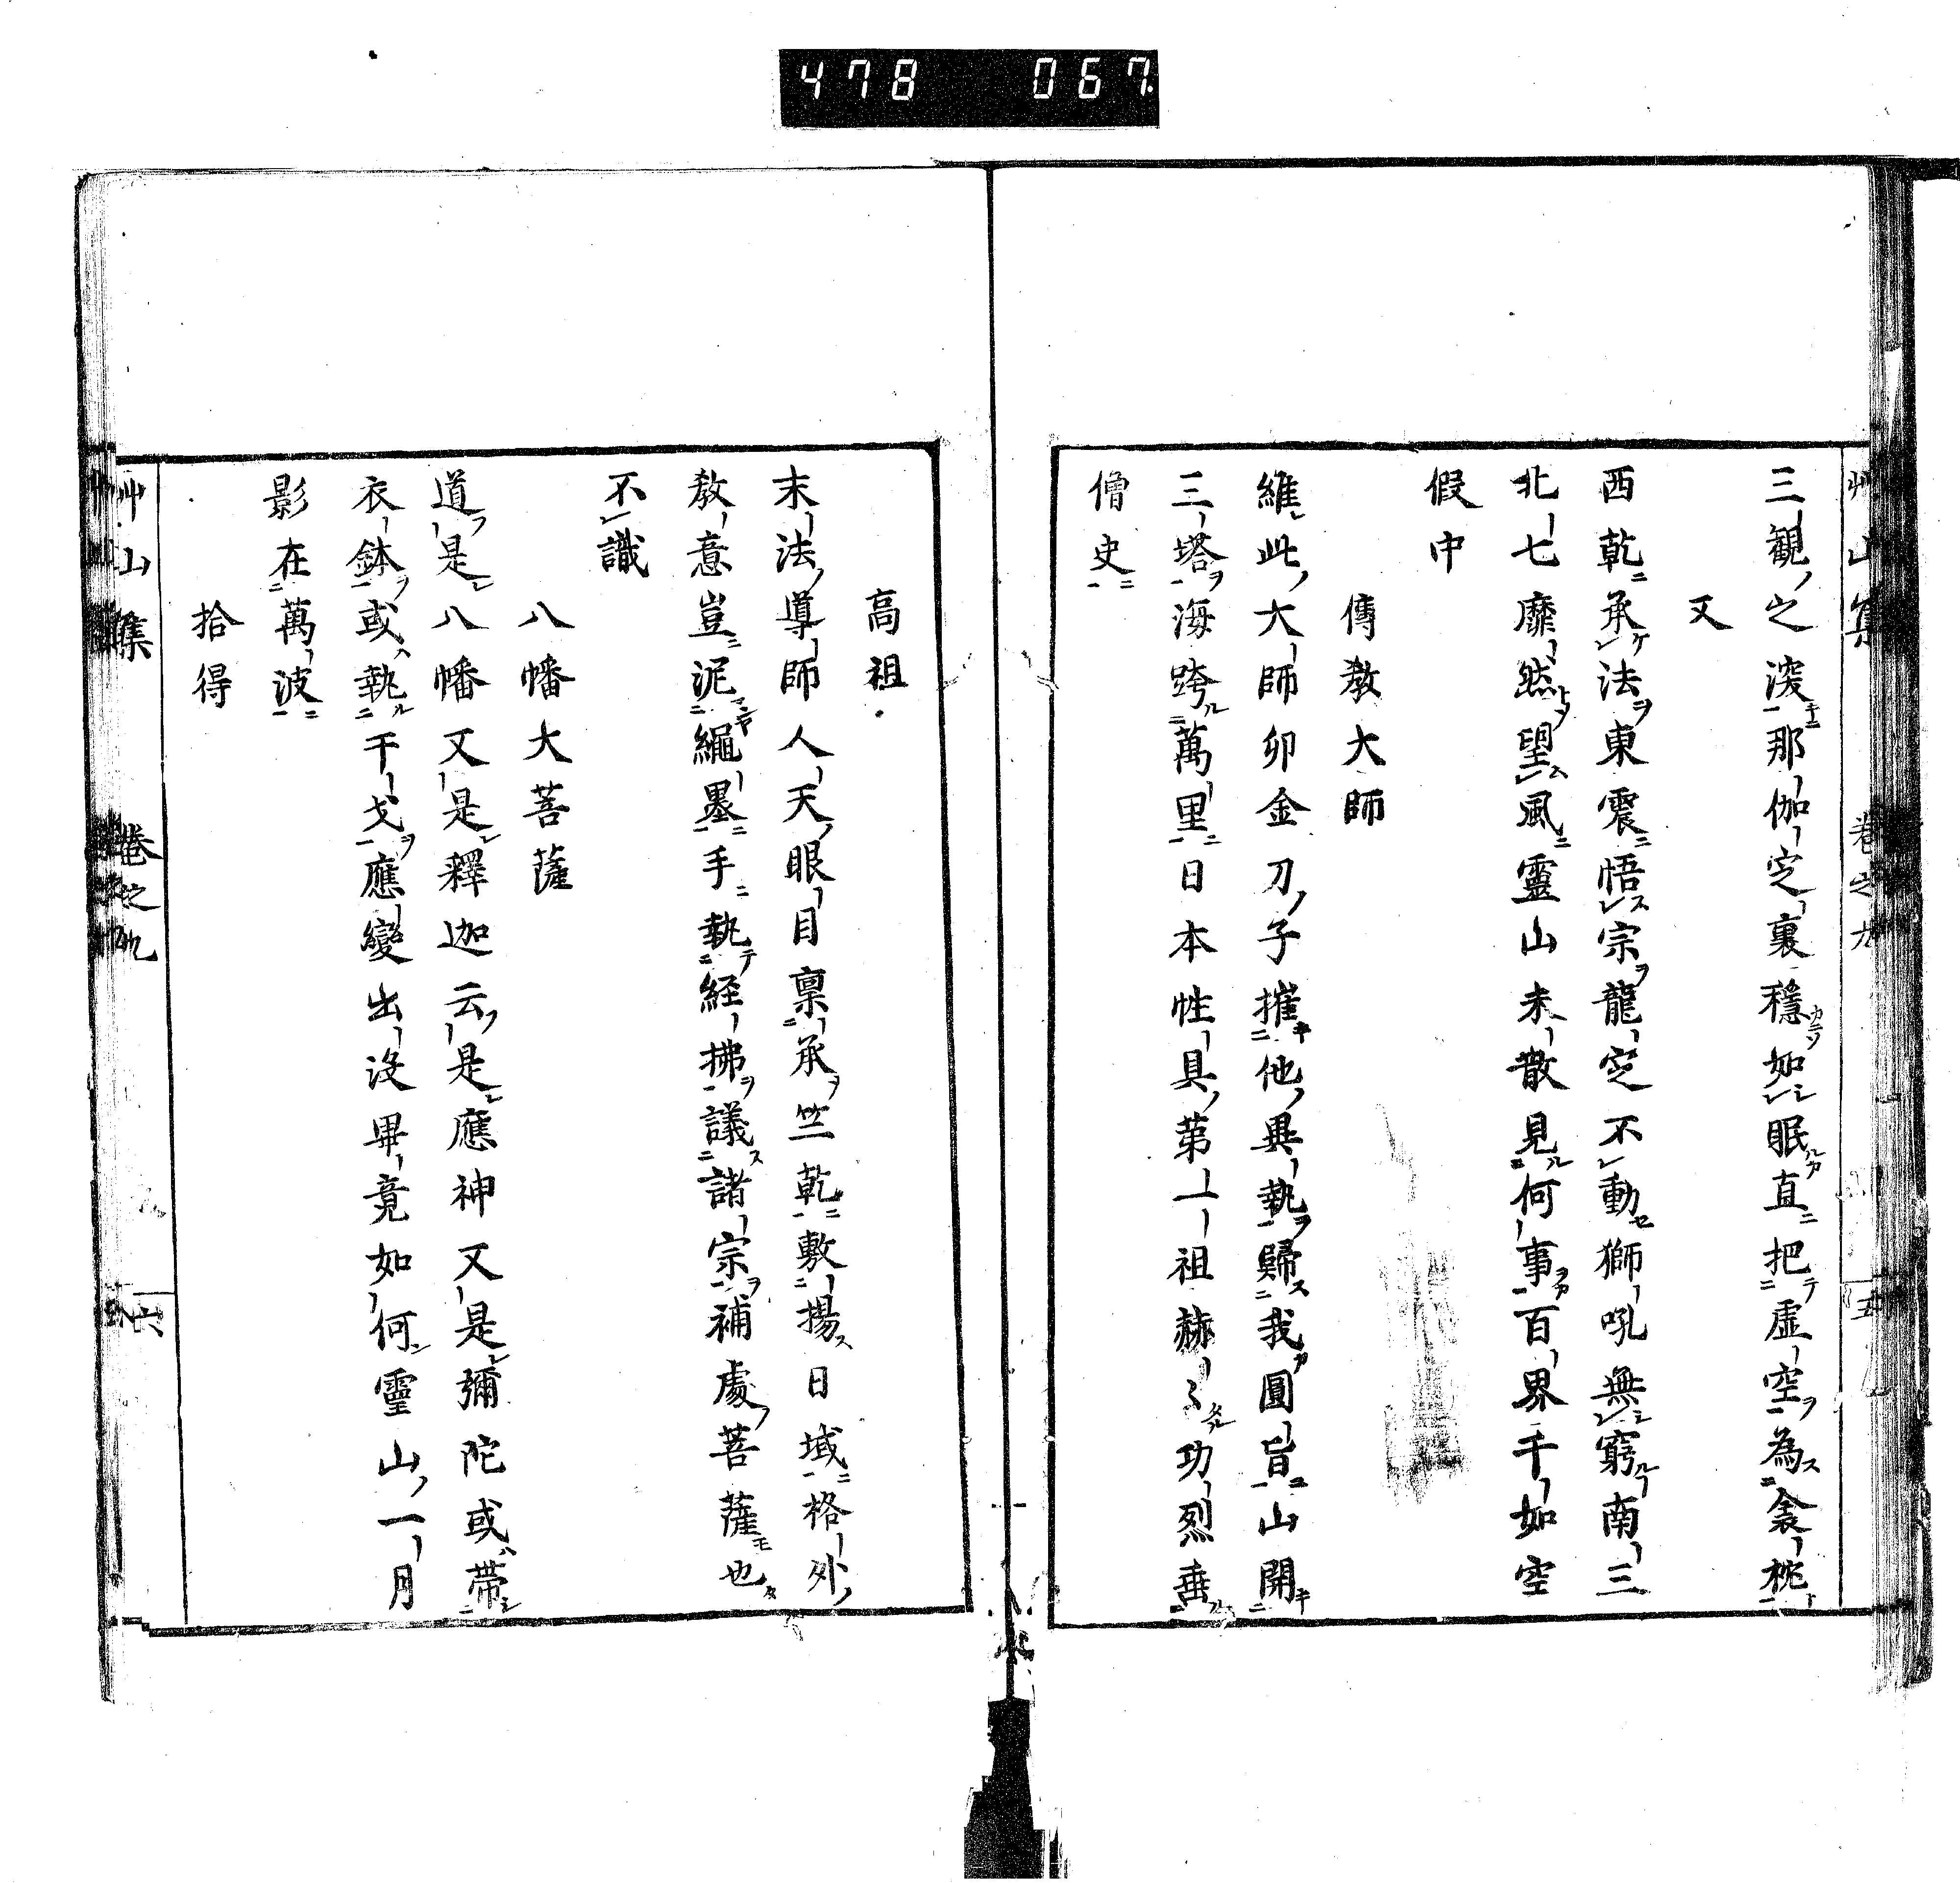 478 067
艸山集 卷之九 五
三觀之深那伽定裏穩如眠直把虛空為衾枕
又
西乾承法東震悟宗龍定不動獅吼無窮南三
北七靡然望風靈山未散見何事百界千如空
假中
傳教大師
維此大師卯金刀子摧他異執歸我圓旨山開
三塔海跨萬里日本性具第一祖赫々功烈垂
僧史
高祖
末法導師人天眼目稟承竺乾敷揚日域格外
教意豈泥繩墨手執経拂議諸宗補處菩薩也
不識
八幡大菩薩
道是八幡又是釋迦云是應神又是彌陀或帶
衣鉢或執干戈應變出沒畢竟如何靈山一月
影在萬波
拾得
艸山集 卷之九 六